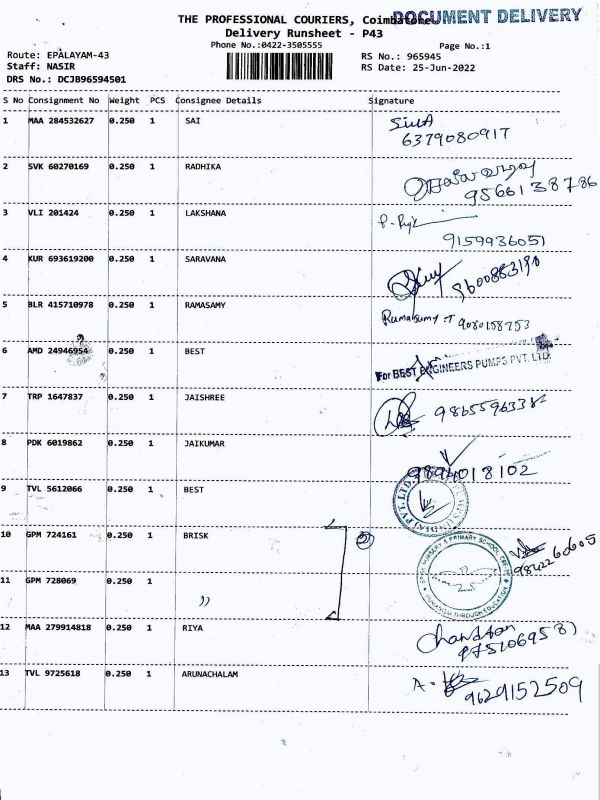 THE PROFESSIONAL COURIERS, Coimbatore
DOCUMENT DELIVERY
Delivery Runsheet - P43
Phone No.:0422-3505555
Page No.:1
Route: EPALAYAM-43
RS No.: 965945
Staff: NASIR
RS Date: 25-Jun-2022
DRS No.: DCJB96594501
S No Consignment No Weight PCS Consignee Details Signature
1 MAA 284532627 0.250 1 SAI
6379080917
2 SVK 60270169 0.250 1 RADHIKA
9566138786
3 VLI 201424 0.250 1 LAKSHANA
9159936051
4 KUR 693619200 0.250 1 SARAVANA
9600883190
5 BLR 415710978 0.250 1 RAMASAMY
Ramasamy T
6 AMD 24946954 0.250 1 BEST
For BEST ENGINEERS PUMPS PVT. LTD.
7 TRP 1647837 0.250 1 JAISHREE
8 PDK 6019862 0.250 1 JAIKUMAR
9894018102
9 TVL 5612066 0.250 1 BEST
PVT. LTD.
10 GPM 724161 0.250 1 BRISK
NURSERY & PRIMARY SCHOOL
THROUGH EDUCATION
11 GPM 728069 0.250 1 ))
12 MAA 279914818 0.250 1 RIYA
13 TVL 9725618 0.250 1 ARUNACHALAM
9629152509